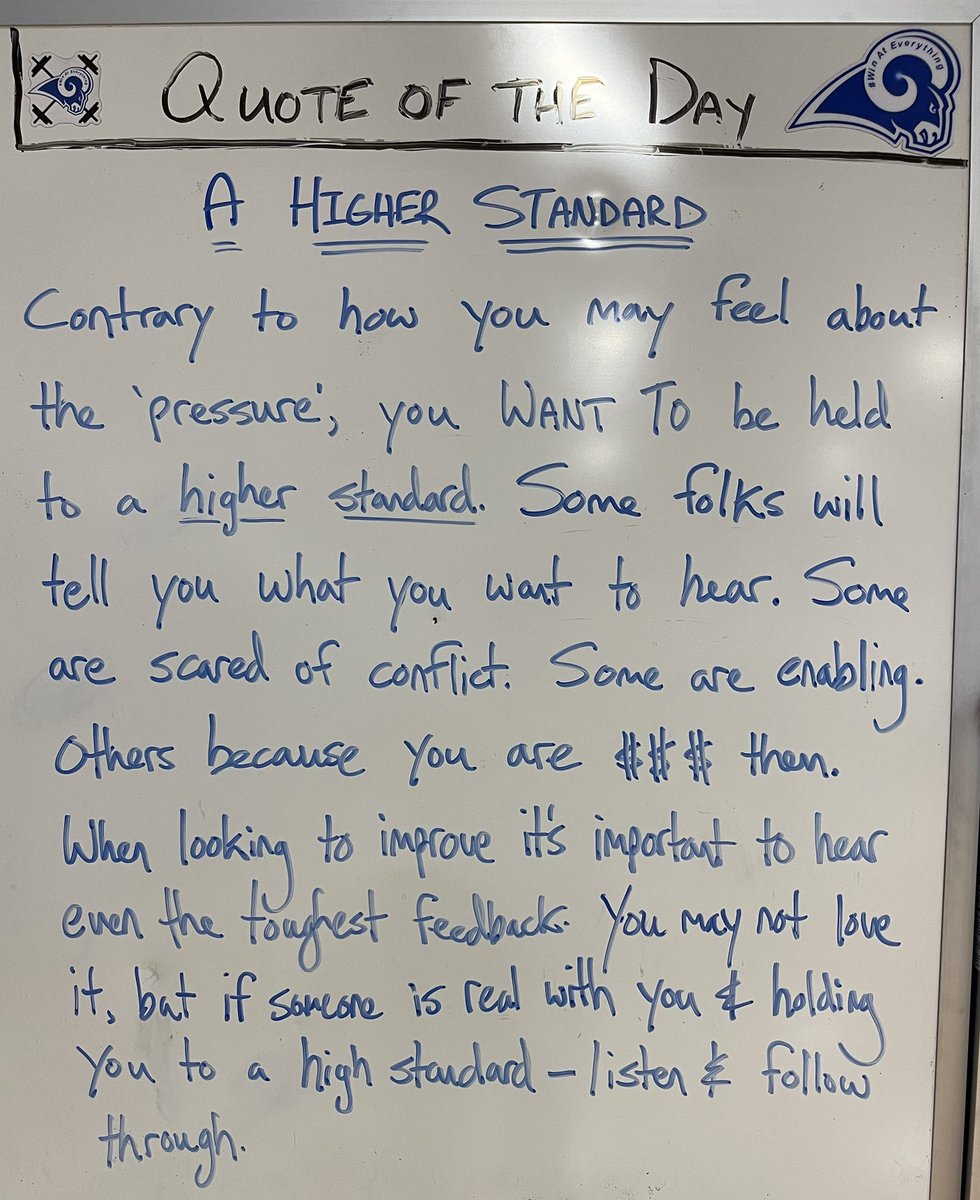 #Win At Everything
QUOTE OF THE DAY
#Win At Everything
A HIGHER STANDARD
Contrary to how you may feel about
the 'pressure', you WANT TO be held
to a higher standard. Some folks will
tell you what you want to hear. Some
are scared of conflict. Some are enabling.
Others because you are $$$ them.
When looking to improve it's important to hear
even the toughest feedback. You may not love
it, but if someone is real with you & holding
you to a high standard – listen & follow
through.